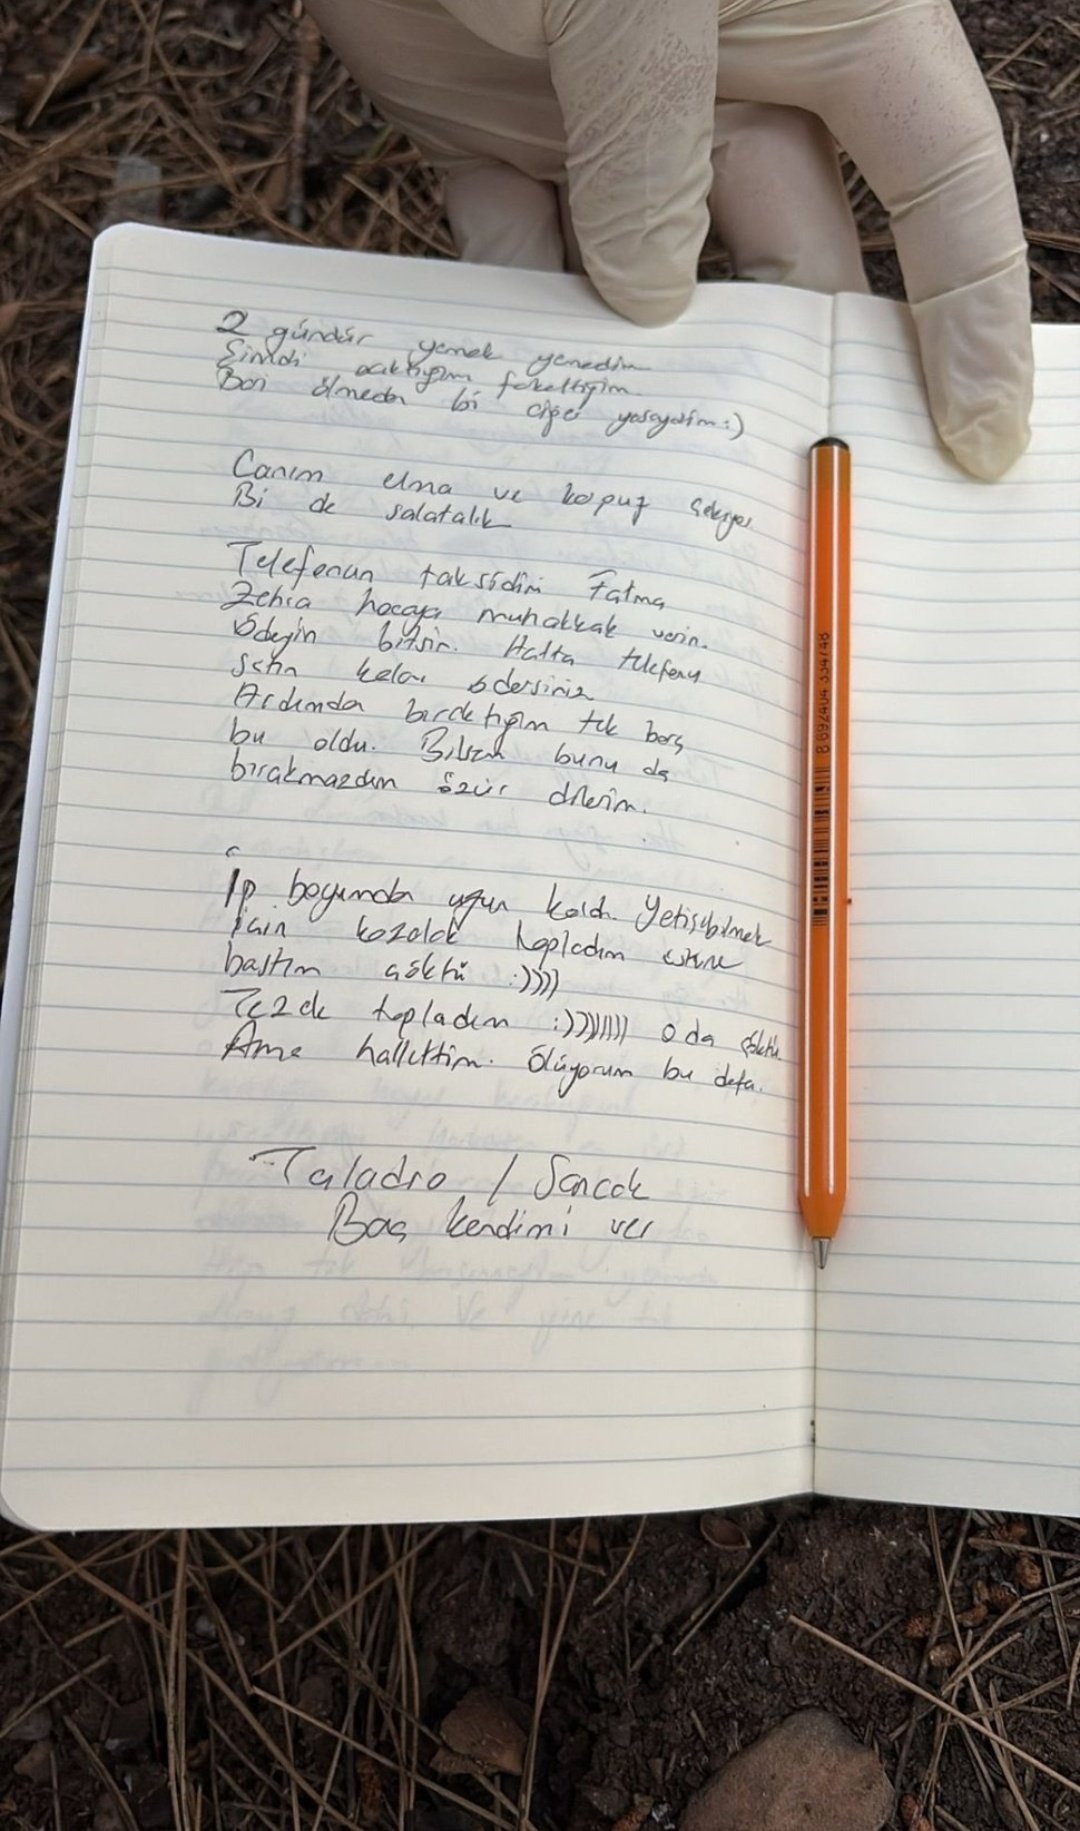 2 gündür yemek yemedim
Şimdi acıktığım fekettiğim.
Bari ölmeden bi ciğer yeseydim :)
Canım elma ve karpuz çekiyor
Bi de salatalık
Telefonun taksidini Fatma
Zehra hocaya muhakkak verin.
Ödeyin bitsin. Hatta telefonu
satın kalanı ödersiniz
Ardımda bıraktığım tek borç
bu oldu. Bilsem bunu da
bırakmazdım özür dilerim.
İp boyumdan uzun kaldı. Yetişebilmek
için kozalak topladım üstüne
bastım çöktü :))))
Tezek topladım :))))))))) o da çöktü
Ama hallettim. Ölüyorum bu defa.
Taladro / Sancak
Baş kendimi ver
8 692404 334748